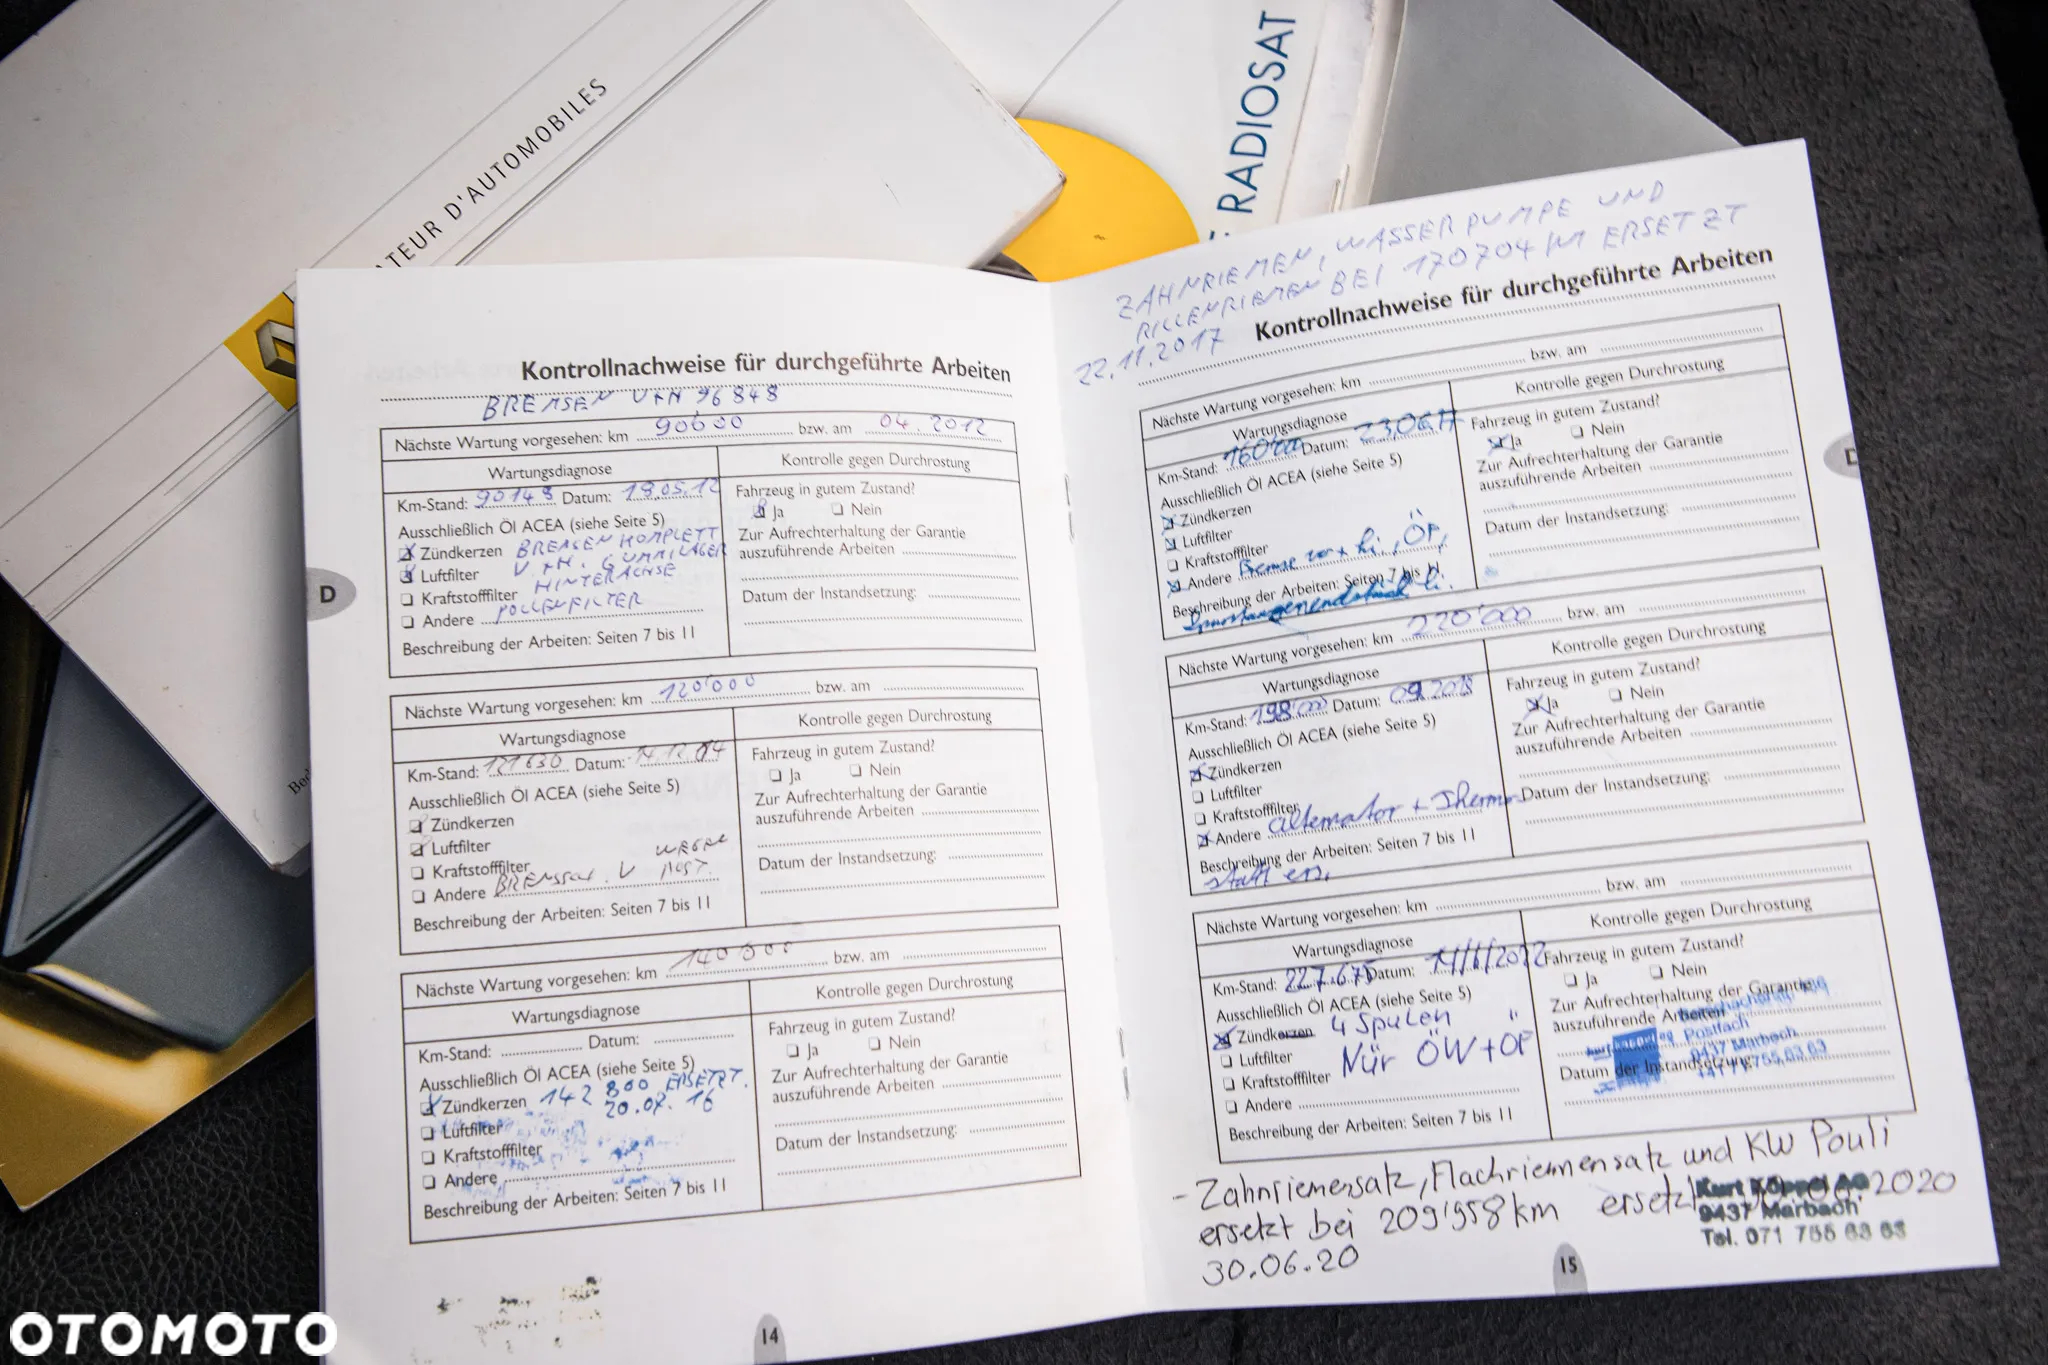 ATEUR D'AUTOMOBILES
RADIOSAT
Kontrollnachweise für durchgeführte Arbeiten
BREMSEN V+H 96848
Nächste Wartung vorgesehen: km 90600 bzw. am 04.2012
Wartungsdiagnose
Kontrolle gegen Durchrostung
Km-Stand: 90148 Datum: 18.05.12
Fahrzeug in gutem Zustand?
Ja Nein
Ausschließlich Öl ACEA (siehe Seite 5)
Zur Aufrechterhaltung der Garantie
auszuführende Arbeiten
Zündkerzen BREMSEN KOMPLETT
Luftfilter V+H. GUMMILAGER
HINTERACHSE
Kraftstofffilter
Andere POLLENFILTER
Datum der Instandsetzung:
Beschreibung der Arbeiten: Seiten 7 bis 11
D
Nächste Wartung vorgesehen: km 120'000 bzw. am
Wartungsdiagnose
Kontrolle gegen Durchrostung
Km-Stand: 121630 Datum: 14.12.
Fahrzeug in gutem Zustand?
Ja Nein
Ausschließlich Öl ACEA (siehe Seite 5)
Zur Aufrechterhaltung der Garantie
auszuführende Arbeiten
Zündkerzen
Luftfilter
Kraftstofffilter WEGEN
Andere BREMSSCH. V ROST.
Datum der Instandsetzung:
Beschreibung der Arbeiten: Seiten 7 bis 11
Nächste Wartung vorgesehen: km 140 bzw. am
Wartungsdiagnose
Kontrolle gegen Durchrostung
Km-Stand: Datum:
Fahrzeug in gutem Zustand?
Ja Nein
Ausschließlich Öl ACEA (siehe Seite 5)
Zur Aufrechterhaltung der Garantie
auszuführende Arbeiten
Zündkerzen 142 800 ERSETZT.
20.07.16
Luftfilter
Kraftstofffilter
Andere
Datum der Instandsetzung:
Beschreibung der Arbeiten: Seiten 7 bis 11
14
ZAHNRIEMEN, WASSERPUMPE UND
RILLENRIEMEN BEI 170704 KM ERSETZT
22.11.2017
Kontrollnachweise für durchgeführte Arbeiten
Nächste Wartung vorgesehen: km bzw. am
Wartungsdiagnose
Kontrolle gegen Durchrostung
Km-Stand: Datum: 23.06.17
Fahrzeug in gutem Zustand?
Ja Nein
Ausschließlich Öl ACEA (siehe Seite 5)
Zur Aufrechterhaltung der Garantie
auszuführende Arbeiten
Zündkerzen
Luftfilter
Kraftstofffilter
Andere Bremse vor + hi, ÖF,
Datum der Instandsetzung:
Beschreibung der Arbeiten: Seiten 7 bis 11
Spurstangenendstück li.
Nächste Wartung vorgesehen: km 220'000 bzw. am
Wartungsdiagnose
Kontrolle gegen Durchrostung
Km-Stand: 198'000 Datum: 09.2018
Fahrzeug in gutem Zustand?
Ja Nein
Ausschließlich Öl ACEA (siehe Seite 5)
Zur Aufrechterhaltung der Garantie
auszuführende Arbeiten
Zündkerzen
Luftfilter
Kraftstofffilter
Andere alternator + Thermo
Datum der Instandsetzung:
Beschreibung der Arbeiten: Seiten 7 bis 11
statt ers.
Nächste Wartung vorgesehen: km bzw. am
Wartungsdiagnose
Kontrolle gegen Durchrostung
Km-Stand: 227.675 Datum: 14/6/2022
Fahrzeug in gutem Zustand?
Ja Nein
Ausschließlich Öl ACEA (siehe Seite 5)
Zur Aufrechterhaltung der Garantie
auszuführende Arbeiten
Zündkerzen 4 Spulen
Luftfilter Nür ÖW + ÖF
Kraftstofffilter
Andere
Postfach
9437 Marbach
Datum der Instandsetzung:
Beschreibung der Arbeiten: Seiten 7 bis 11
- Zahnriemensatz, Flachriemensatz und KW Pouli
ersetzt bei 209'958km ersetzt 2020
30.06.20
Kurt Köppel AG
9437 Marbach
Tel. 071 755 63 63
15
OTOMOTO